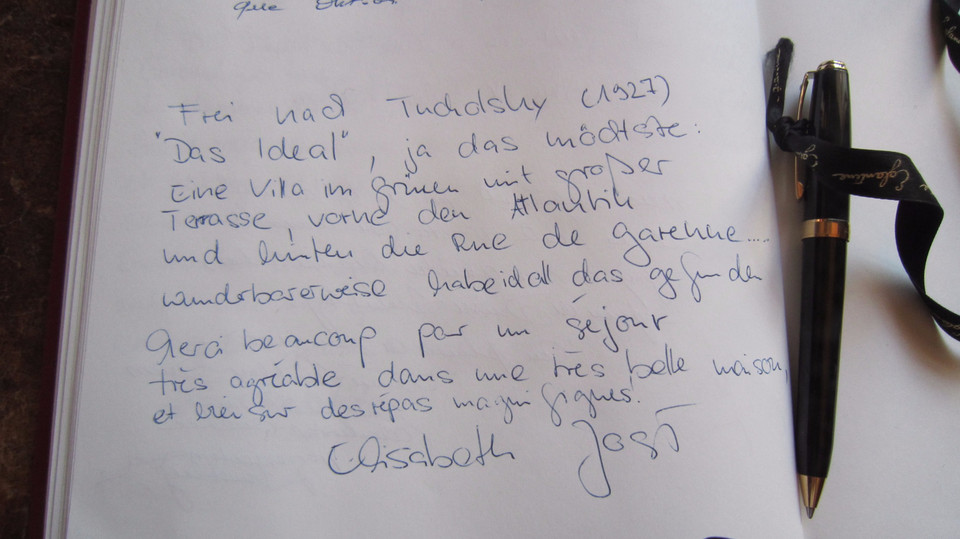 que
Frei nach Tucholsky (1927)
"Das Ideal", ja das möchtste:
Eine Villa im Grünen mit großer
Terrasse, vorne den Atlantik
und hinten die Rue de Garenne.....
wunderbarerweise habe ich all das gefunden
Merci beaucoup par un séjour
très agréable dans une très belle maison,
et bien sur des répas magnifiques!
Elisabeth Jost
Eglantine